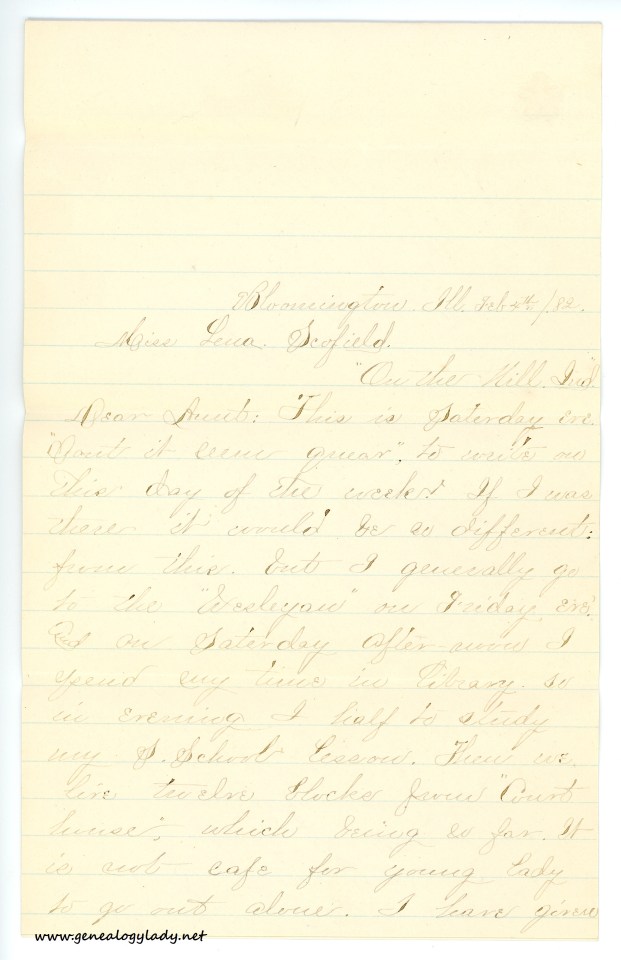 Bloomington. Ill. Feb 4th/.82.
Miss Lena. Scofield.
"On the Hill. Ind".
Dear Aunt: This is Saturday eve.
"Dont it seem quear", to write on
this day of the week? If I was
there it would be so different:
from this. but I generally go
to the "Wesleyan" on Friday eve'.
on Saturday after-noon I
spend my time in Library. so
in evening I half to study
my S. School lisson. Then we.
live twelve blocks from "Court
house", which being so far. It
is not safe for young lady
to go out alone. I have given
www.genealogylady.net